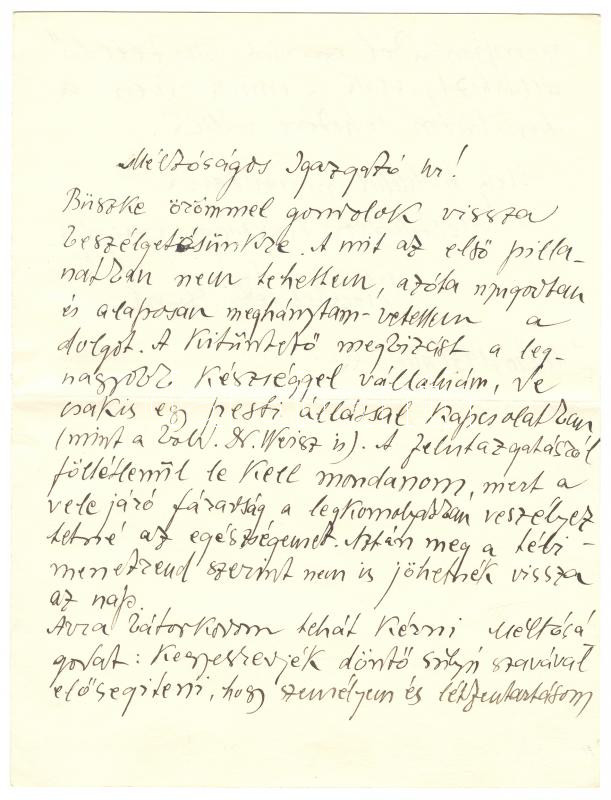 Méltóságos Igazgató Úr!
Büszke örömmel gondolok vissza
beszélgetésünkre. A mit az első pilla-
natban nem tehettem, azóta nyugodtan
és alaposan meghánytam-vetettem a
dolgot. A kitüntető megbizást a leg-
nagyobb készséggel vállalnám, de
csakis egy pesti állással kapcsolatban
(mint a boldv. Dr. Weisz is). A felutazgatásról
föltétlenül le kell mondanom, mert a
vele járó fáradság a legkomolyabban veszélyez
tetné az egészségemet. Aztán meg a téli-
menetrend szerint nem is jöhetnék vissza
az nap.
Arra bátorkodom tehát kérni Méltósá
godat: Kegyeskedjék döntő súlyú szavával
elősegíteni, hogy személyem és létfentartásom